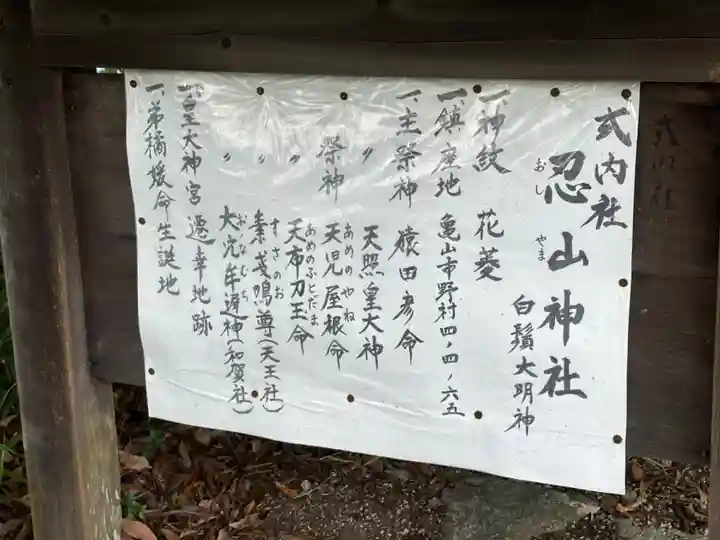 式内社
忍山神社
おし やま
白鬚大明神
一、神紋 花菱
一、鎮座地 亀山市野村四ノ四ノ六五
一、主祭神 猿田彦命
〃 天照皇大神
祭神 天児屋根命
あめのやね
〃 天布刀玉命
あめのふとだま
〃 素戔鳴尊(天王社)
すさのお
〃 大穴牟遅神(和賀社)
おなむち
一、皇大神宮 遷幸地跡
一、弟橘媛命生誕地
式内社